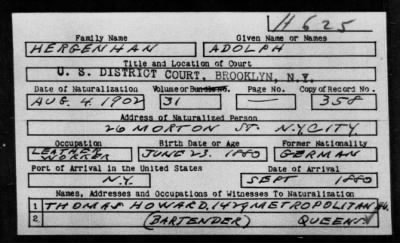 H625
Family Name Given Name or Names
HERGENHAN ADOLPH
Title and Location of Court
U. S. DISTRICT COURT, BROOKLYN, N.Y.
Date of Naturalization Volume or Bundle No. Page No. Copy of Record No.
AUG. 4. 1902 31 — 358
Address of Naturalized Person
26 MORTON ST. N.Y. CITY
Occupation Birth Date or Age Former Nationality
LEATHER WORKER JUNE 23. 1880 GERMAN
Port of Arrival in the United States Date of Arrival
N.Y. SEPT 1880
Names, Addresses and Occupations of Witnesses To Naturalization
1 THOMAS HOWARD, 1429 METROPOLITAN
2 (BARTENDER) QUEENS